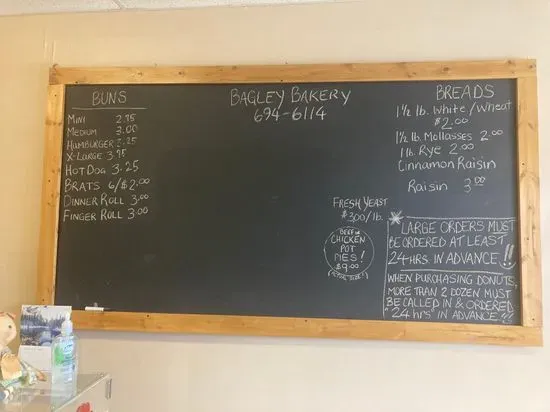 BUNS
MINI 2.75
MEDIUM 3.00
HAMBURGER 3.25
X-LARGE 3.75
HOT DOG 3.25
BRATS 6/$2.00
DINNER ROLL 3.00
FINGER ROLL 3.00
BAGLEY BAKERY
694-6114
FRESH YEAST
$3.00/lb.
BEEF or
CHICKEN
POT
PIES!
$9.00
(ACTUAL SIZE!)
BREADS
1½ lb. White/Wheat
$2.00
1½ lb. Mollasses 2.00
1 lb. Rye 2.00
Cinnamon Raisin
Raisin 3.00
* LARGE ORDERS MUST
BE ORDERED AT LEAST
24 HRS IN ADVANCE!!
WHEN PURCHASING DONUTS,
MORE THAN 2 DOZEN MUST
BE CALLED IN & ORDERED
"24 hrs" IN ADVANCE!!!